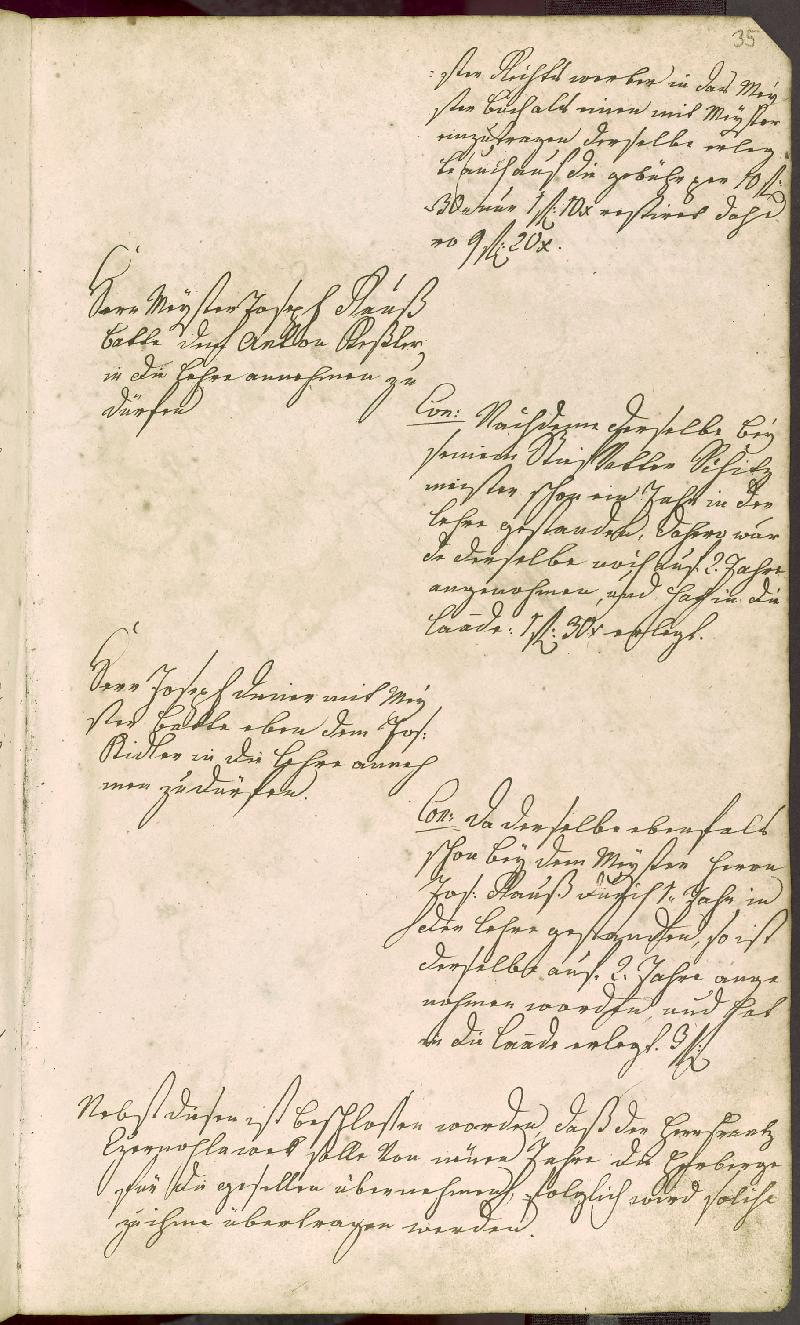 35
ster Rechts werber in das Mey
ster buch als einen mit Meyster
einzutragen derselbe erleg
te auf die gebühr per 10 f:
30 nur 1 f: 10x restiret dahe
ro 9 f: 20x.
Herr Meyster Joseph Rauß
batte den Anton Keßler
in die Lehre annehmen zu
därfen
Con: Nachdeme derselbe bey
seinem Stief Vatter
meister schon ein Jahr in der
Lehre gestanden, dahero wur
de derselbe noch auf 2. Jahre
angenohmen, und hat in die
Laade: 1 f: 30x erlegt.
Herr Joseph mit Mey
ster batte eben dem Jos:
Kidler in die Lehre anneh
men zu därfen.
Con: Da derselbe ebenfals
schon bey dem Meyster Herrn
Jos: Rauß durch 1. Jahr in
der Lehre gestanden, so ist
derselbe auf. 2. Jahre ange
nohmen worden, und hat
in die Laade erlegt. 3 f:
Nebst diesen ist beschlossen worden, daß der Herr Frantz
solle von neuen Jahre die Herberge
für die gesellen übernehmen, folglich wird solche
zu ihme übertragen werden.